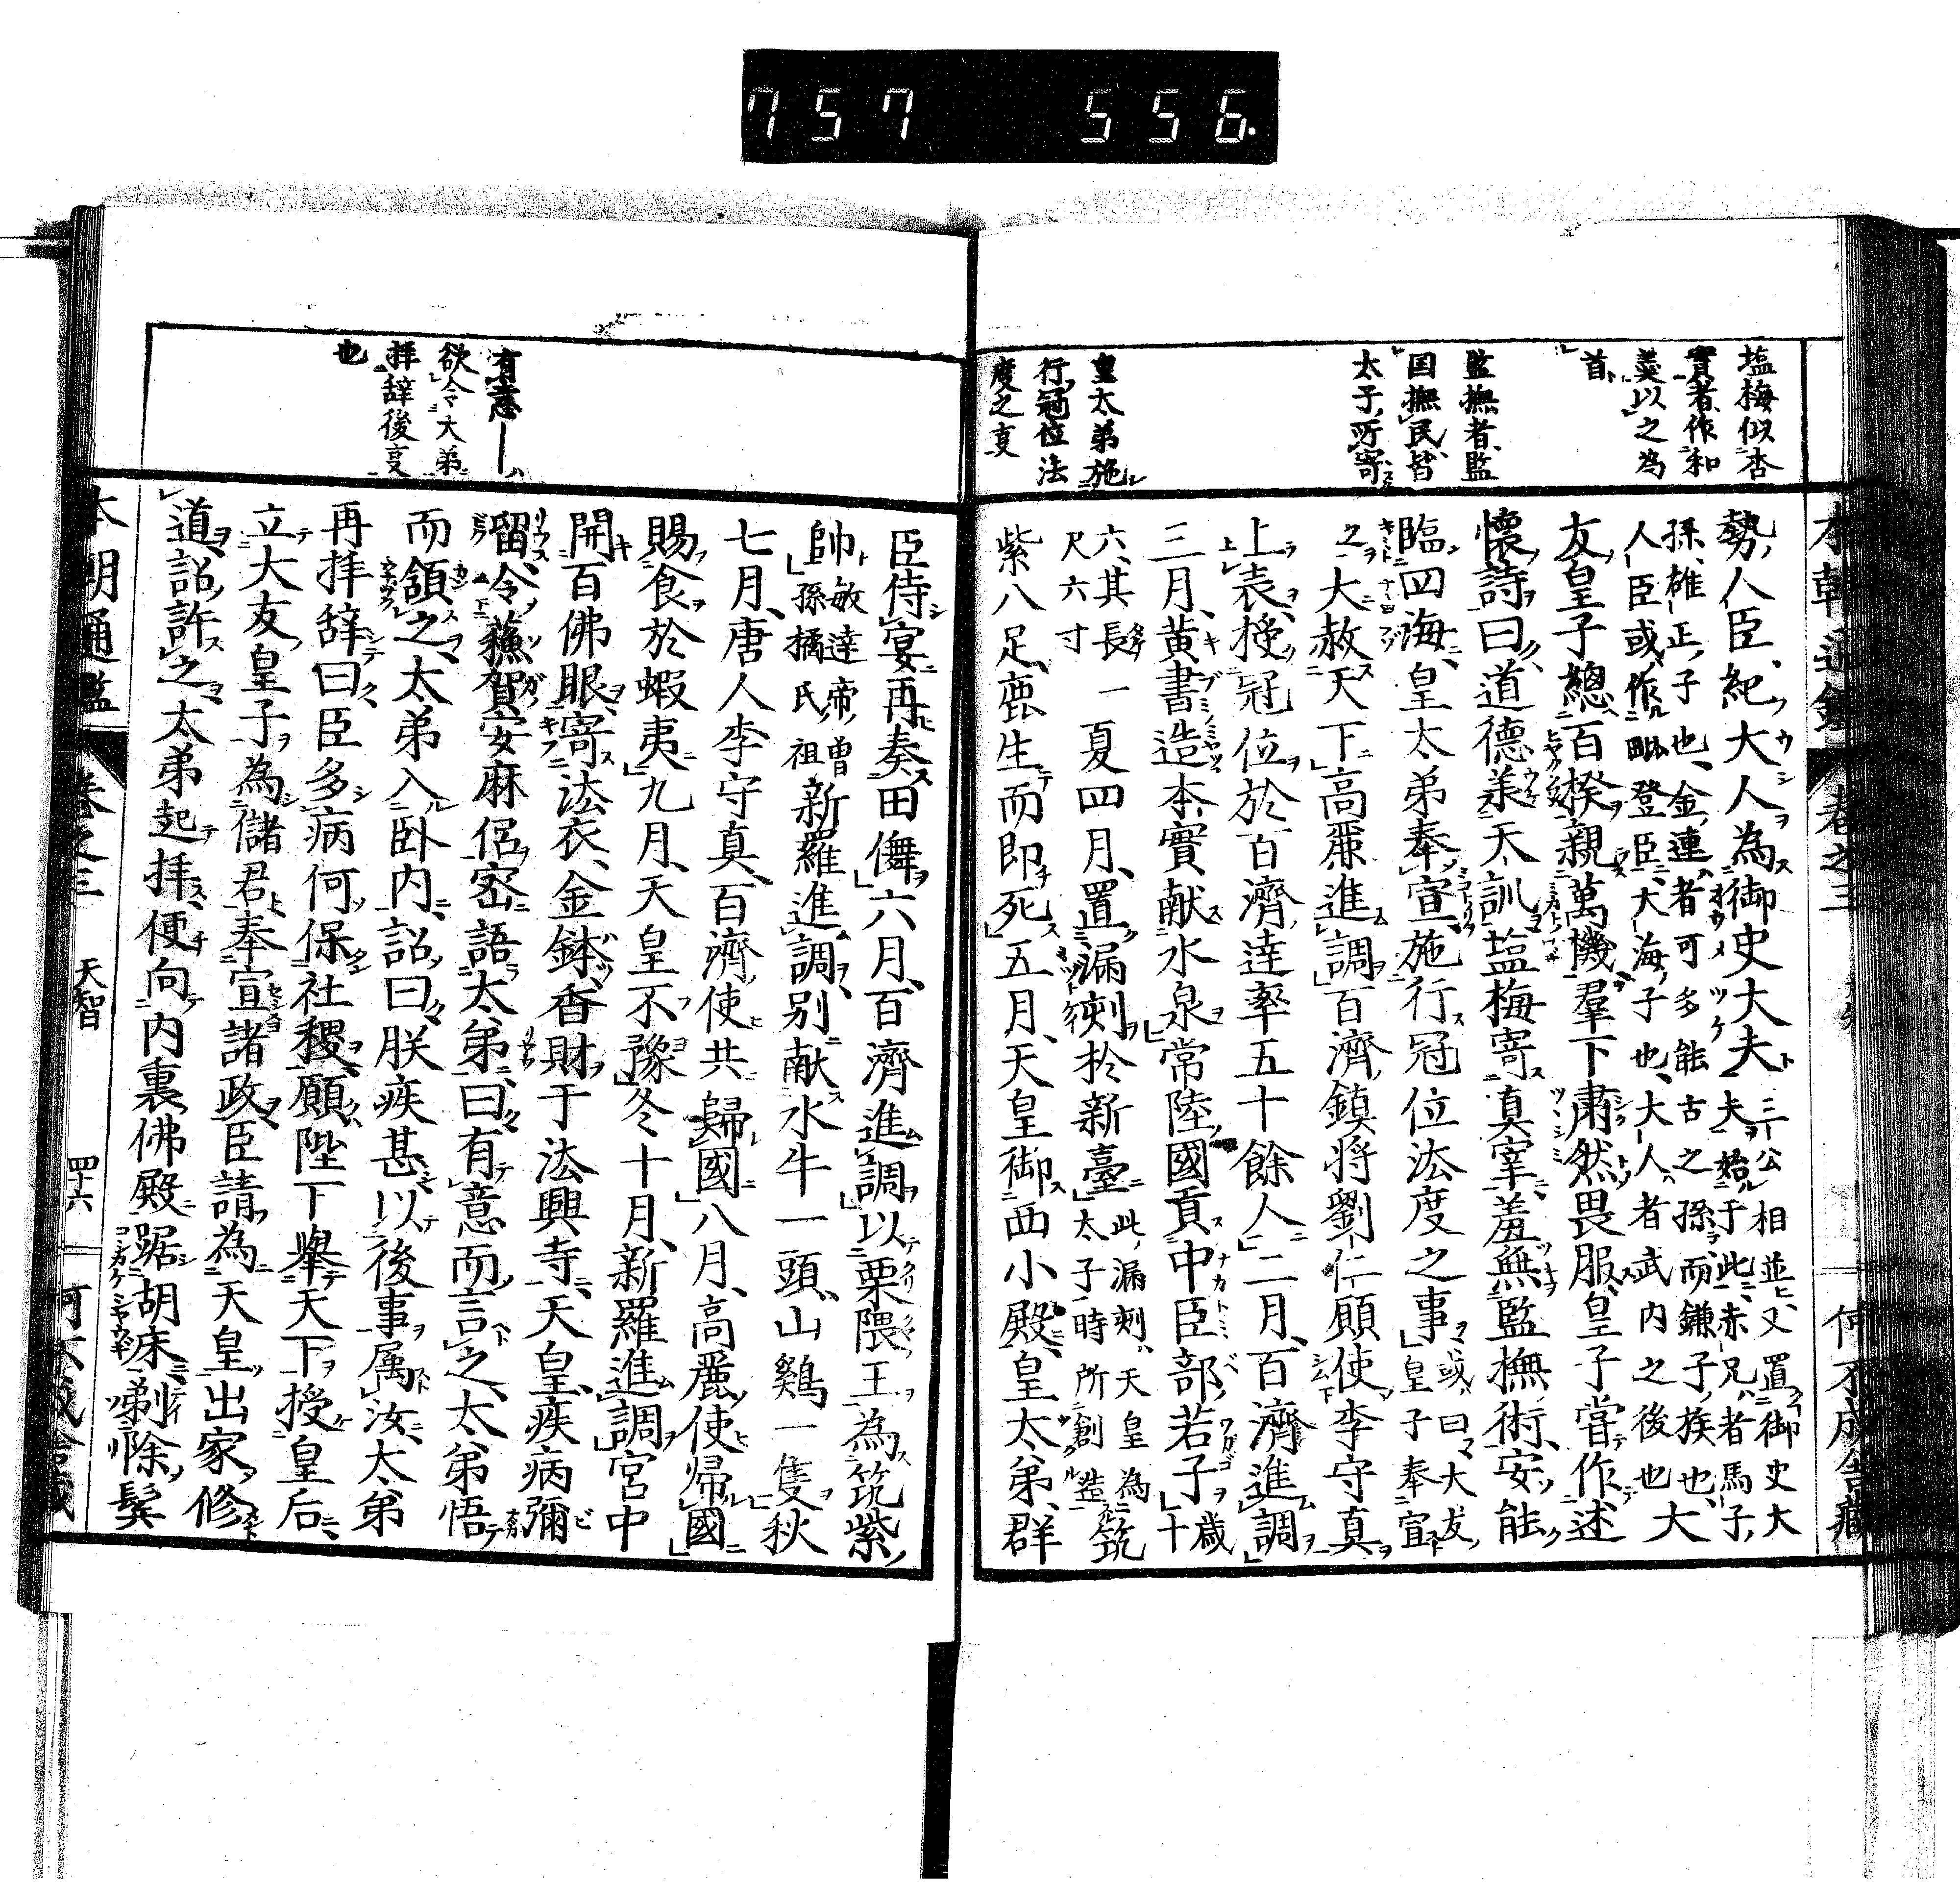 757 556.
塩梅似杏
實者作和
羹以之為
首
監撫者監
国撫民皆
太子所寄
皇太弟施
行冠位法
度之事
勢人臣紀大人為御史大夫三公相並又置御史大
夫始于此赤兄者馬子
孫雄正子也金連者可多能古之孫而鎌子族也大
人臣或作毗登臣大海子也大人者武内之後也大
友皇子總百揆親萬機羣下肅然畏服皇子甞作述
懷詩曰道德羕天訓塩梅寄真宰羞無監撫術安能
臨四海皇太弟奉宣施行冠位法度之事或曰大友
皇子奉宣
之大赦天下高麗進調百濟鎮将劉仁願使李守真
上表授冠位於百濟達率五十餘人二月百濟進調
三月黄書造本實献水泉常陸國貢中臣部若子歳十
六其長一
尺六寸夏四月置漏剋於新臺此漏剋天皇為
太子時所創造筑
紫八足鹿生而即死五月天皇御西小殿皇太弟群
有意――
欲令大弟
拝辞後事
也
臣侍宴再奏田儛六月百濟進調以栗隈王為筑紫
帥敏達帝曽
孫橘氏祖新羅進調别献水牛一頭山鷄一隻秋
七月唐人李守真百濟使共歸國八月高麗使帰國
賜食於蝦夷九月天皇不豫冬十月新羅進調宮中
開百佛眼寄法衣金鉢香財于法興寺天皇疾病彌
留令蘓賀安麻侶密語太弟曰有意而言之太弟悟
而頷之太弟入卧内詔曰朕疾甚以後事属汝太弟
再拝辞曰臣多病何保社稷願陛下舉天下授皇后
立大友皇子為儲君奉宣諸政臣請為天皇出家修
道詔許之太弟起拝便向内裏佛殿踞胡床剃除鬂
本朝通鑑 卷之三 天智 四十六